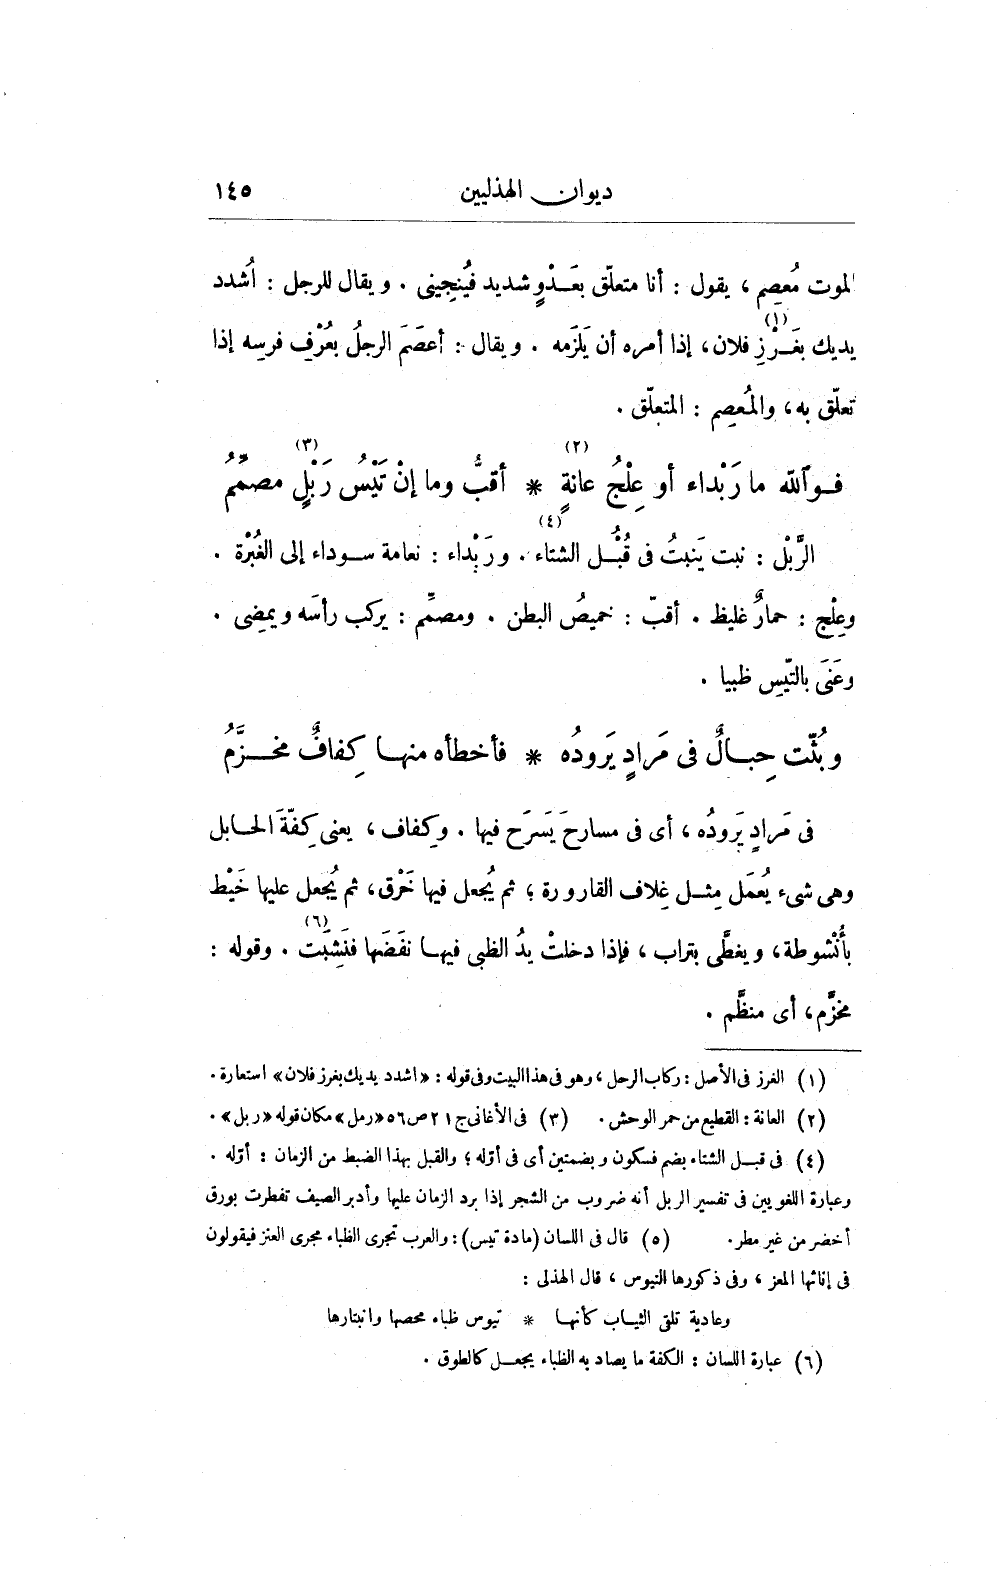 ديوان الهذليين ١٤٥
الموت مُعصِم ، يقول : أنا متعلّق بعَدْوٍ شديد فيُنجِينى . ويقال للرجل : اُشدد
يديك بغَرْزِ (١) فلان، إذا أمره أن يَلزَمه . ويقال : أعصَمَ الرجلُ بعُرْفِ فرسِه إذا
تعلّق به، والمُعصِم : المتعلّق .
فوٱللّه ما رَبْداء أو عِلْجُ عانةٍ (٢) * أقبُّ وما إنْ تَيْسُ رَبْلٍ (٣) مصمِّمُ
الرَّبْل : نبت يَنبتُ فى قُبْل (٤) الشتاء . ورَبْداء : نعامة سوداء إلى الغُبْرة .
وعِلْج : حمارٌ غليظ . أقبّ : خميصُ البطن . ومصمِّم : يركب رأسَه ويمضِى .
وعَنَى بالتَّيس ظبيا .
وبُثّت حِبالٌ فى مَرادٍ يَرودُه * فأخطأه منها كِفافٌ مخزَّمُ
فى مَرادٍ يَرودُه ، أى فى مسارحَ يَسرَح فيها . وكِفاف ، يعنى كِفّةَ الحابل
وهى شىء يُعمَل مِثل غِلاف القارورة ؛ ثم يُجعل فيها خَرْق، ثم يُجعل عليها خَيْط
بأُنْشوطة، ويغطَّى بتراب ، فإذا دخلتْ يدُ الظبى فيها نفَضَها فنَشِبَت (٦) . وقوله :
مخزَّم، أى منظَّم .
(١) الغرز فى الأصل : ركاب الرحل ، وهو فى هذا البيت وفى قوله : «اشدد يديك بغرز فلان» استعارة .
(٢) العانة : القطيع من حمر الوحش . (٣) فى الأغانى ج ٢١ ص ٥٦ «رمل» مكان قوله «ربل» .
(٤) فى قبل الشتاء بضم فسكون وبضمتين أى فى أوّله ؛ والقبل بهذا الضبط من الزمان : أوّله .
وعبارة اللغويين فى تفسير الربل أنه ضروب من الشجر إذا برد الزمان عليها وأدبر الصيف تفطرت بورق
أخضر من غير مطر . (٥) قال فى اللسان (مادة تيس) : والعرب تجرى الظباء مجرى العنز فيقولون
فى إناثها المعز ، وفى ذكورها التيوس ، قال الهذلى :
وعادية تلقى الثياب كأنها * تيوس ظباء محصها وانبتارها
(٦) عبارة اللسان : الكفة ما يصاد به الظباء يجعل كالطوق .